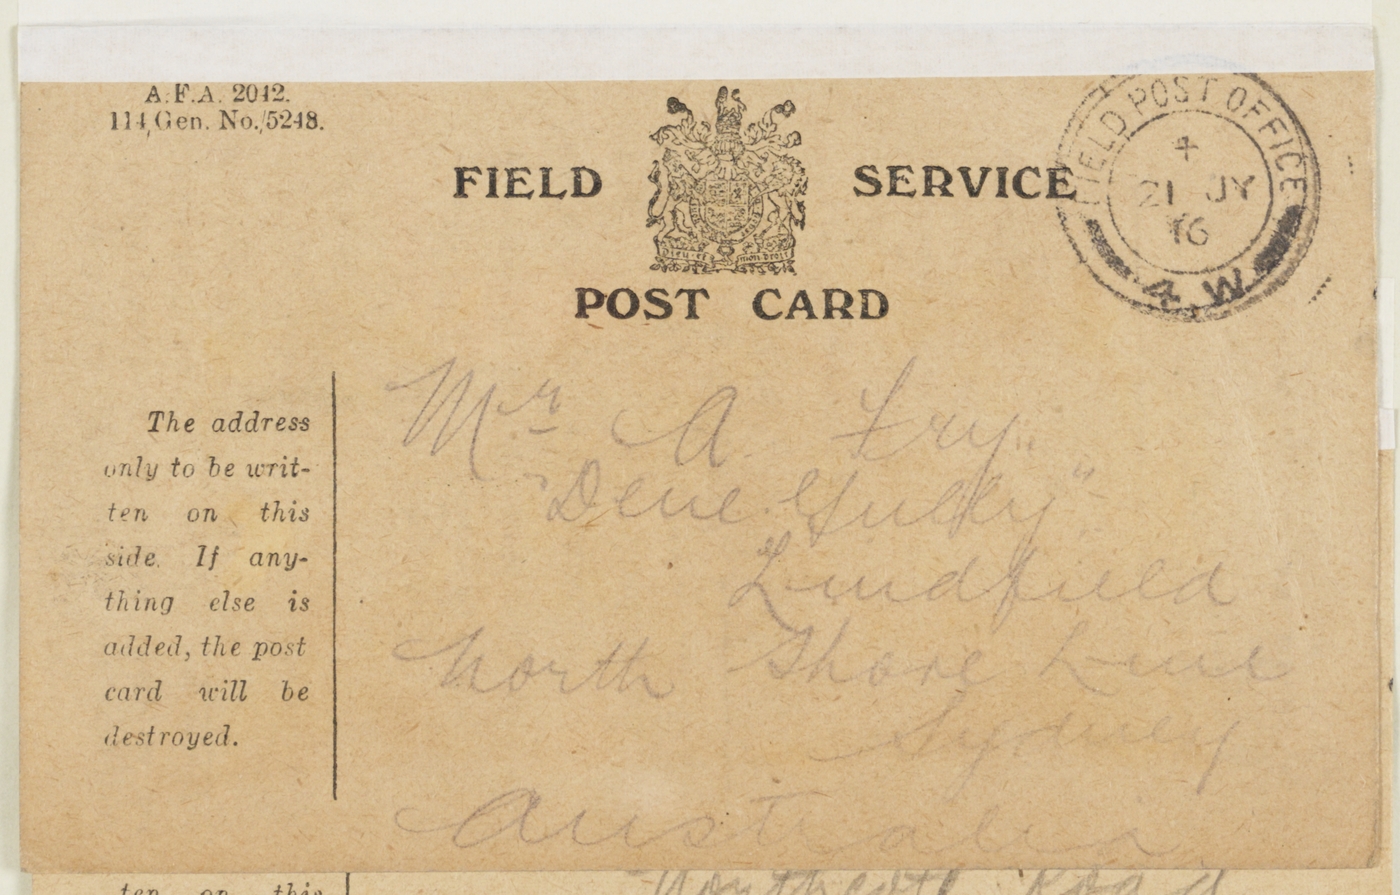 A.F.A. 2042.
114/Gen. No./5248.
FIELD SERVICE
DIEU ET MON DROIT
POST CARD
FIELD POST OFFICE
4
21 JY
16
4.W
The address
only to be writ-
ten on this
side. If any-
thing else is
added, the post
card will be
destroyed.
Mr A Fry
"Dene Gully"
Lindfield
North Shore Line
Sydney
Australia
ten on this
Northcote Road